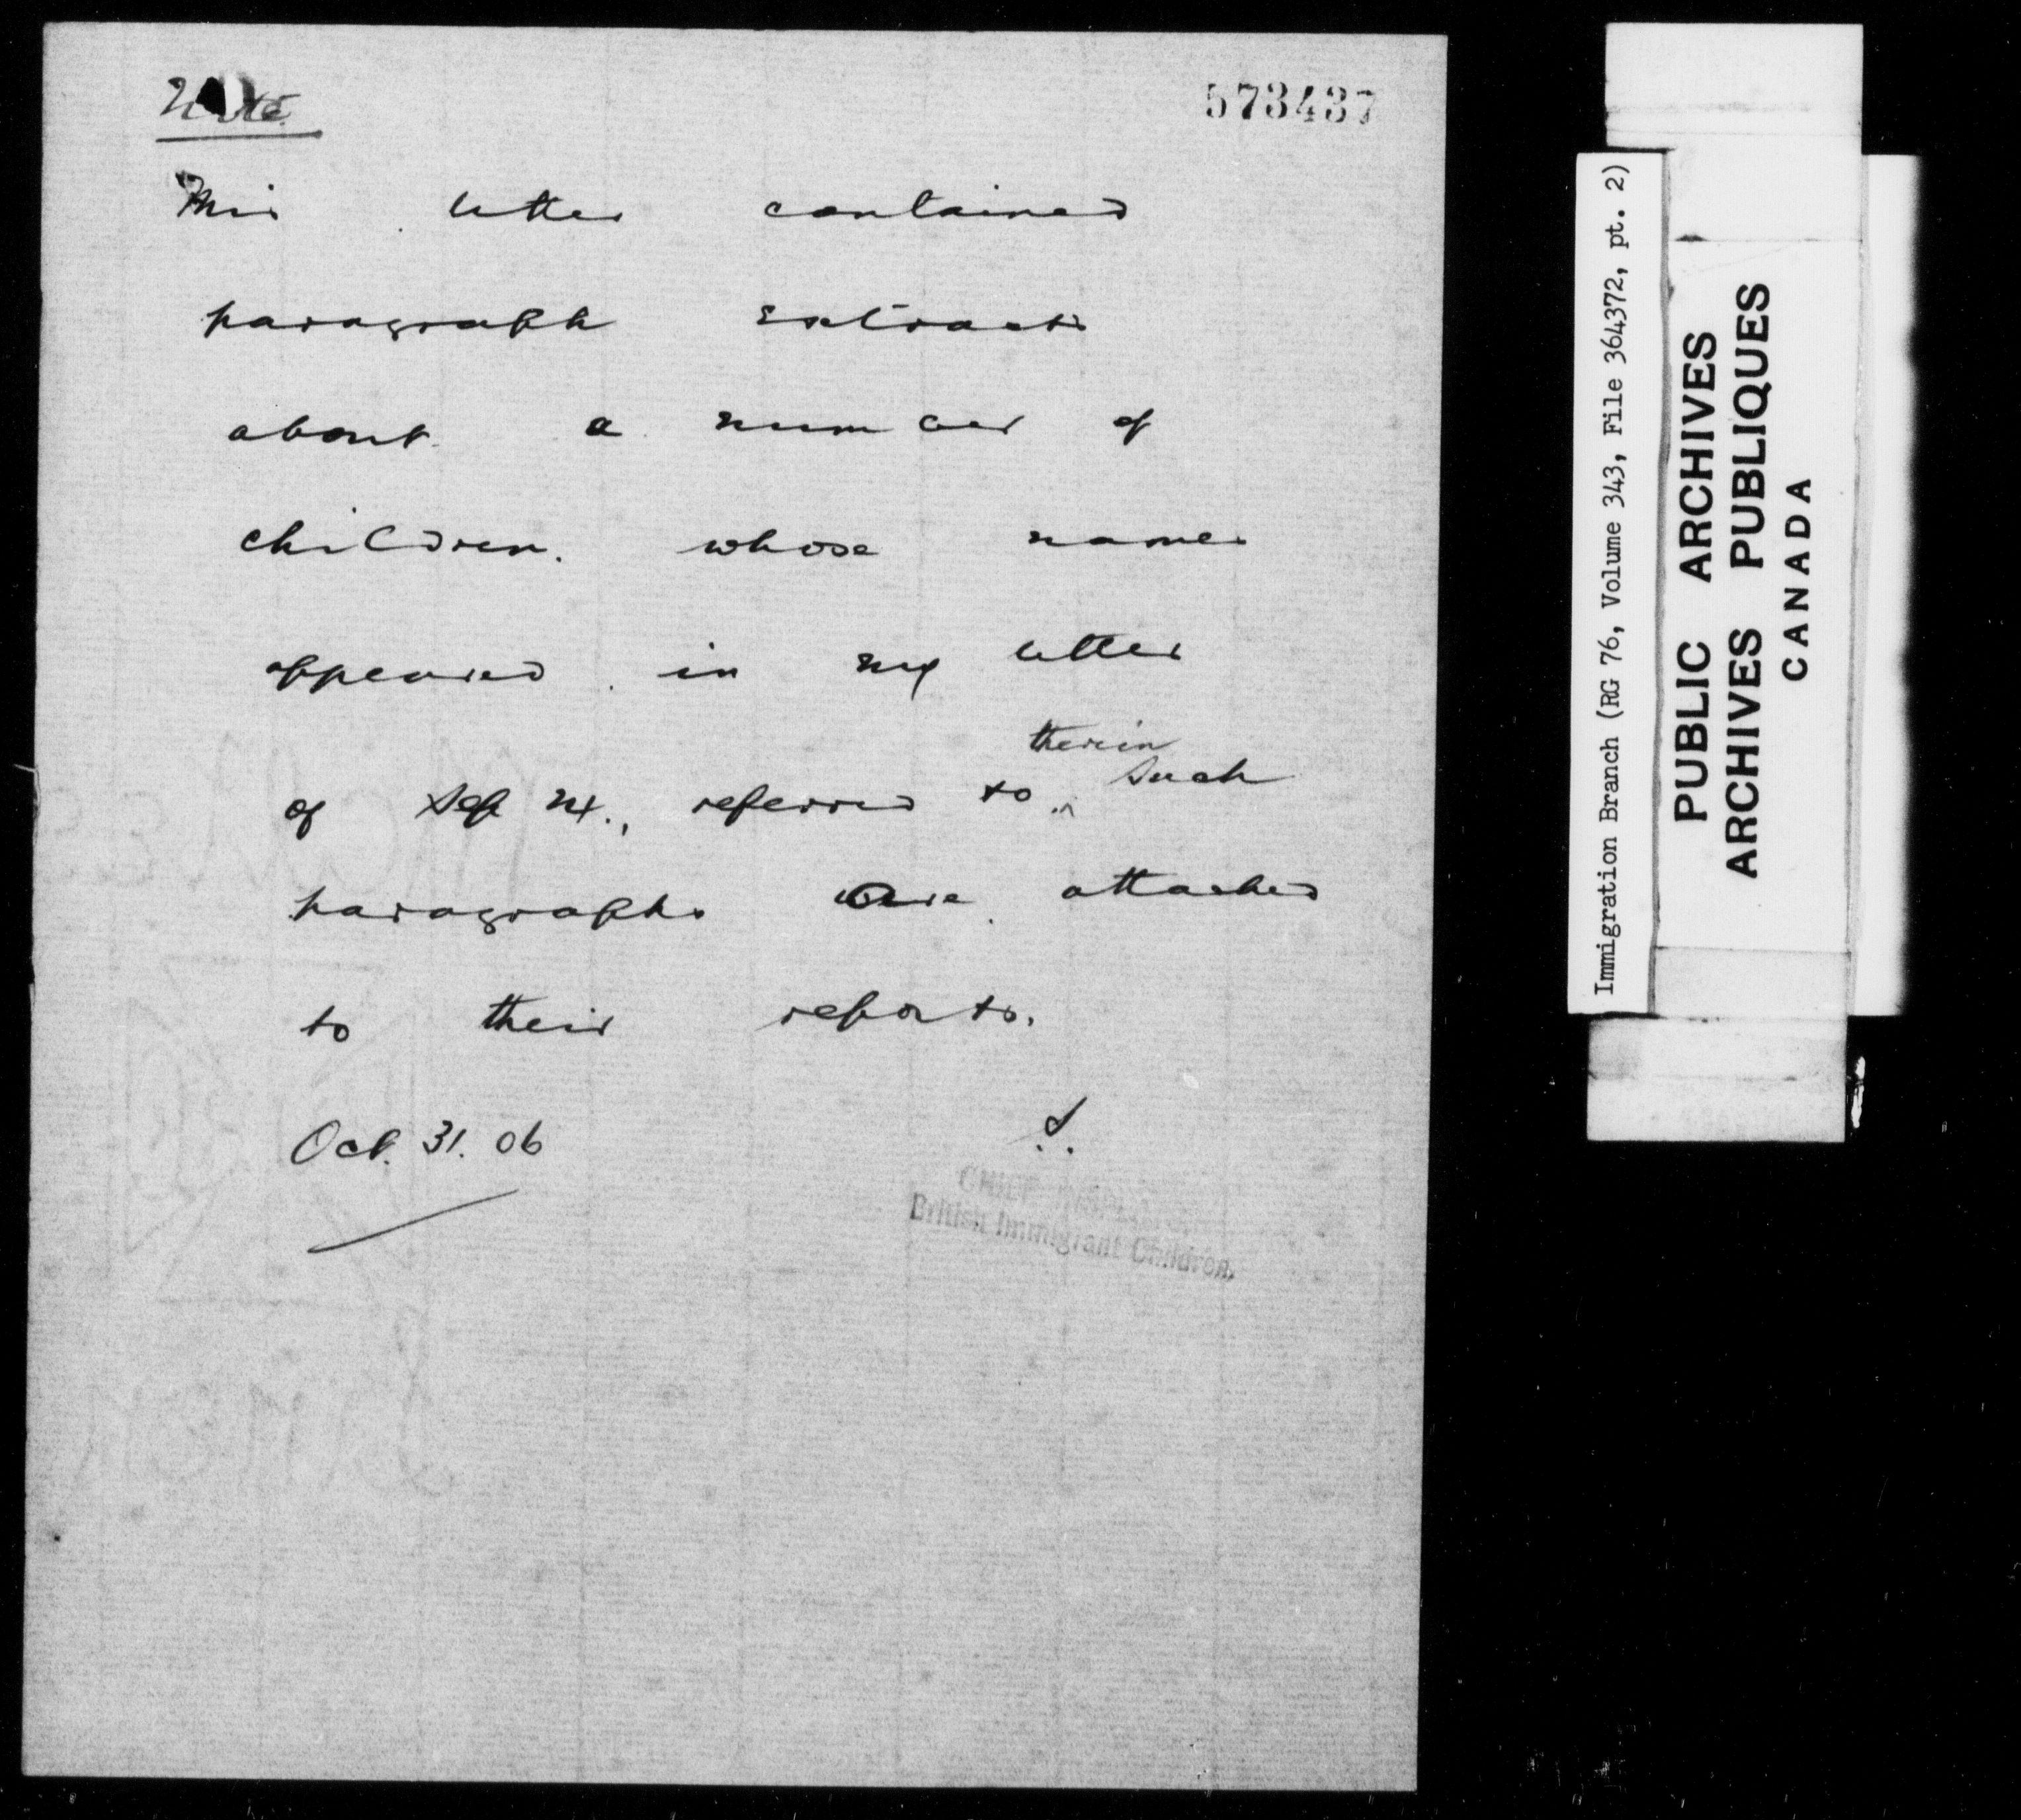 Note
573437
This letter contained
paragraph extracts
about a number of
children. whose names
appeared in my letter
therein
of Sep referred to ^ such
paragraphs are attached
to their reports.
Oct. 31. 06
S.
CHIEF INSPECTOR
British Immigrant Children.
Immigration Branch (RG 76, Volume 343, File 364372, pt. 2)
PUBLIC ARCHIVES
ARCHIVES PUBLIQUES
CANADA